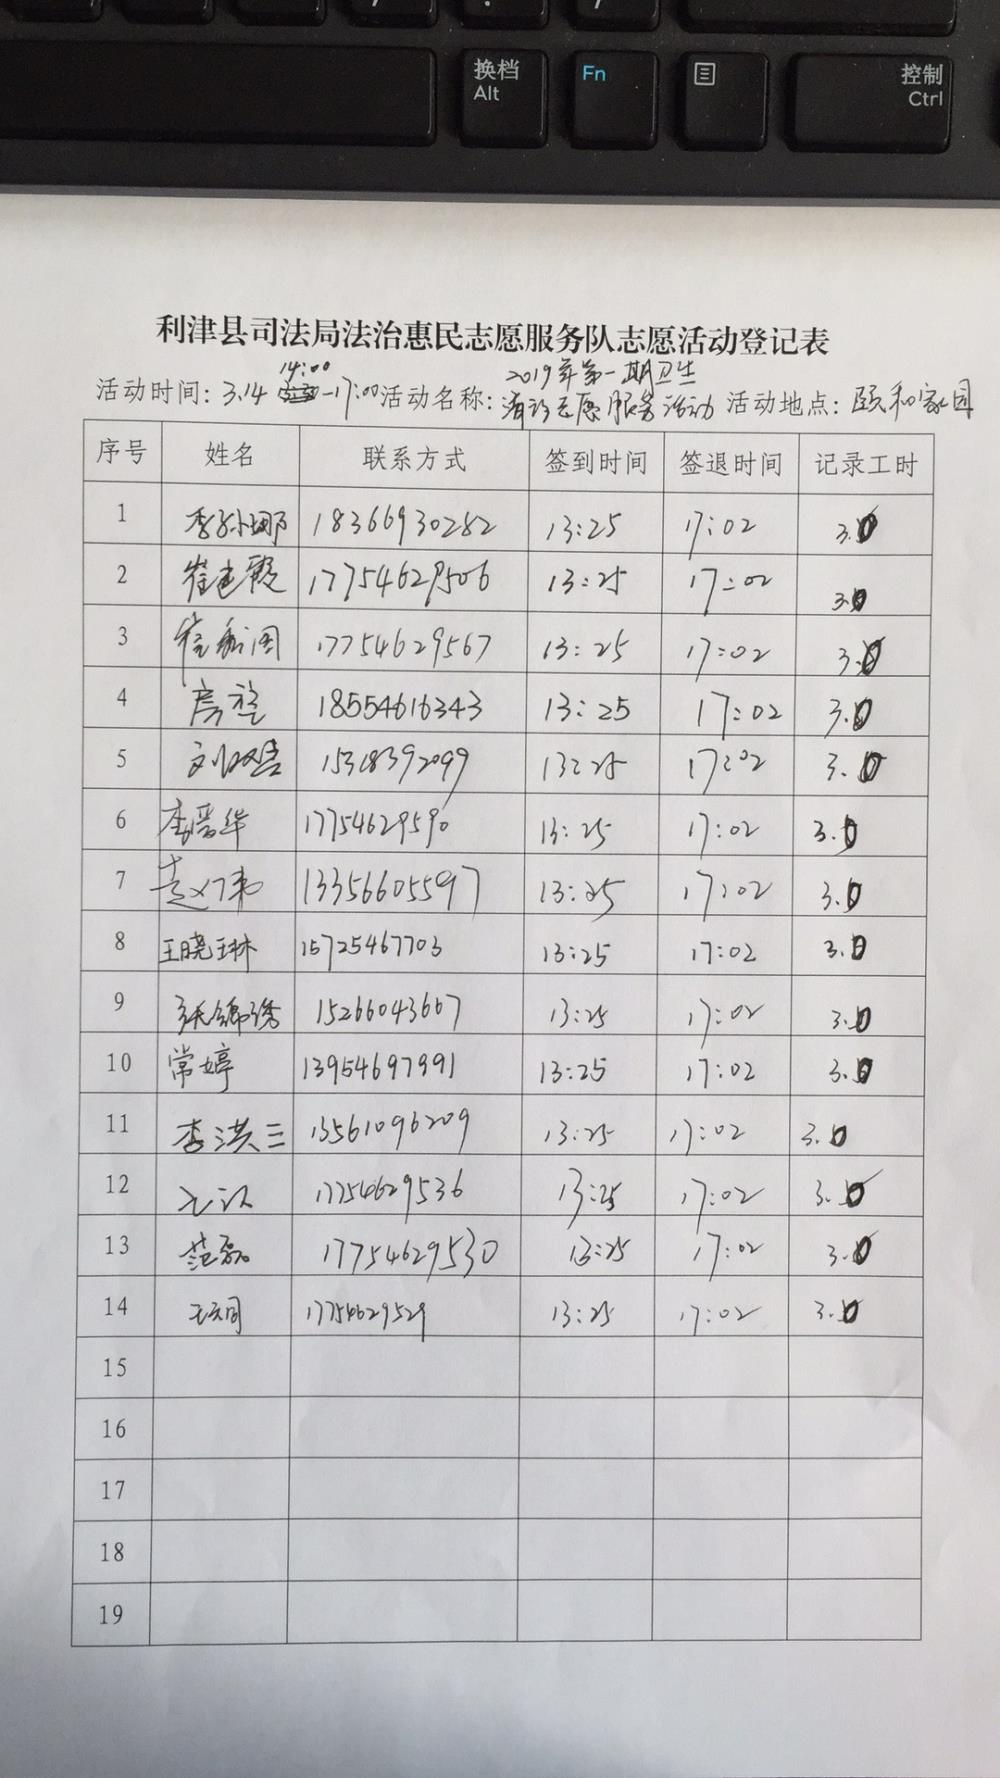 换档
Alt
Fn
控制
Ctrl
利津县司法局法治惠民志愿服务队志愿活动登记表
14:00 2019年第一期卫生
活动时间: 3.14 -17:00 活动名称: 清洁志愿服务活动 活动地点: 颐和家园
序号 姓名 联系方式 签到时间 签退时间 记录工时
1 18366930282 13:25 17:02 3.0
2 崔建霞 17754629506 13:25 17:02 3.0
3 17754629567 13:25 17:02 3.0
4 房 18554616343 13:25 17:02 3.0
5 15318392099 13:25 17:02 3.0
6 李晋华 17754629590 13:25 17:02 3.0
7 13356605597 13:25 17:02 3.0
8 王晓琳 15725467703 13:25 17:02 3.0
9 张锦绣 15266043667 13:25 17:02 3.0
10 常婷 13954697991 13:25 17:02 3.0
11 李洪三 13561096209 13:25 17:02 3.0
12 17754629536 13:25 17:02 3.0
13 范磊 17754629530 13:25 17:02 3.0
14 17754629529 13:25 17:02 3.0
15
16
17
18
19